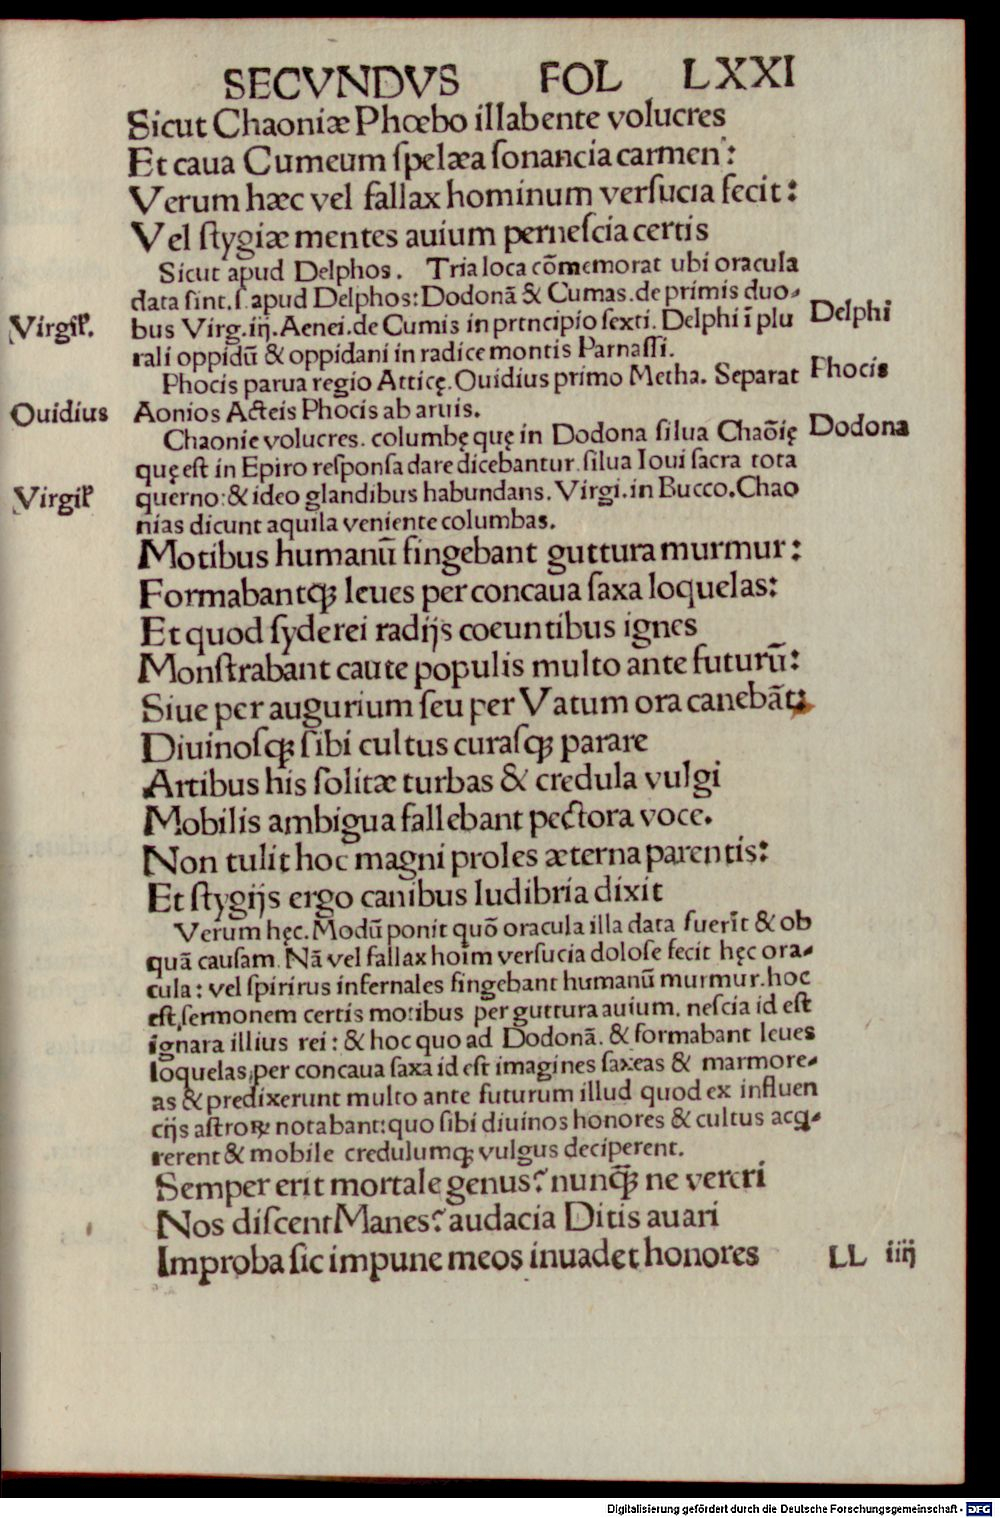 SECVNDVS FOL LXXI
Sicut Chaoniæ Phœbo illabente volucres
Et caua Cumeum ſpelæa ſonancia carmen:
Verum hæc vel fallax hominum verſucia fecit:
Vel ſtygiæ mentes auium perneſcia certis
Sicut apud Delphos. Tria loca cōmemorat ubi oracula
data ſint. ſ. apud Delphos: Dodonā & Cumas. de primis duo⸗
Virgiƚ. bus Virg. iij. Aenei. de Cumis in prtncipio ſexti. Delphi ī plu Delphi
rali oppidū & oppidani in radice montis Parnaſſi.
Phocis parua regio Atticę. Ouidius primo Metha. Separat Phocis
Ouidius Aonios Acteis Phocis ab aruis.
Chaonie volucres. columbę quę in Dodona ſilua Chaōię Dodona
quę eſt in Epiro reſponſa dare dicebantur. ſilua Ioui ſacra tota
Virgiƚ querno: & ideo glandibus habundans. Virgi. in Bucco. Chao
nias dicunt aquila veniente columbas.
Motibus humanū fingebant guttura murmur:
Formabantꝗ; leues per concaua ſaxa loquelas:
Et quod ſyderei radijs coeuntibus ignes
Monſtrabant caute populis multo ante futurū:
Siue per augurium ſeu per Vatum ora canebāt:
Diuinoſꝗ; ſibi cultus curaſꝗ; parare
Artibus his ſolitæ turbas & credula vulgi
Mobilis ambigua fallebant pectora voce.
Non tulit hoc magni proles æterna parentis:
Et ſtygijs ergo canibus ludibria dixit
Verum hęc. Modū ponit quō oracula illa data fuerīt & ob
quā cauſam. Nā vel fallax hoīm verſucia doloſe fecit hęc ora⸗
cula: vel ſpirirus infernales fingebant humanū murmur. hoc
eſt, ſermonem certis motibus per guttura auium. neſcia id eſt
ignara illius rei: & hoc quo ad Dodonā. & formabant leues
loquelas, per concaua ſaxa id eſt imagines ſaxeas & marmore⸗
as & predixerunt multo ante futurum illud quod ex influen
cijs aſtroꝝ notabant: quo ſibi diuinos honores & cultus acꝗ⸗
rerent & mobile credulumꝗ; vulgus deciperent.
Semper erit mortale genus? nunꝗ̄; ne vereri
Nos diſcent Manes? audacia Ditis auari
Improba ſic impune meos inuadet honores LL iiij
Digitalisierung gefördert durch die Deutsche Forschungsgemeinschaft - DFG